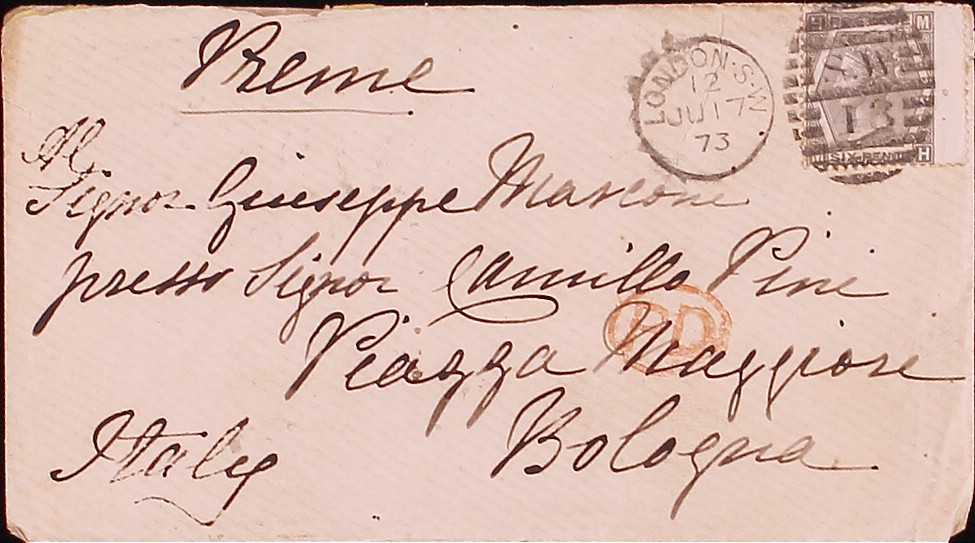 Preme
LONDON·S.W
12
JU 17
73
S.W
13
M
SIX PEN
H
Al
Signor Giuseppe Marconi
presso Signor Camillo Pini
PD
Piazza Maggiore
Bologna
Italy